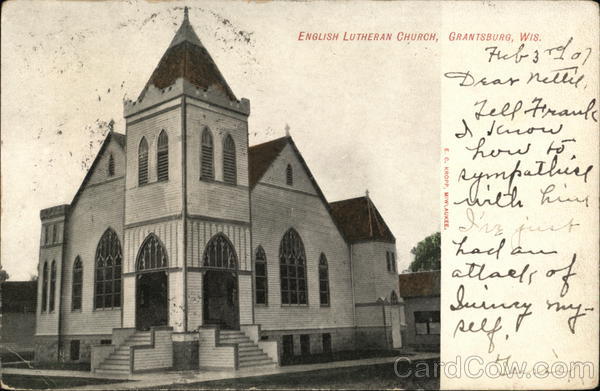 English Lutheran Church, Grantsburg, Wis.
Feb 3rd 07
Dear Nettie,
Tell Frank
I know
how to
sympathise
with him
I've just
had an
attack of
Quincy my-
self,
E. C. KROPP, MILWAUKEE.
CardCow.com